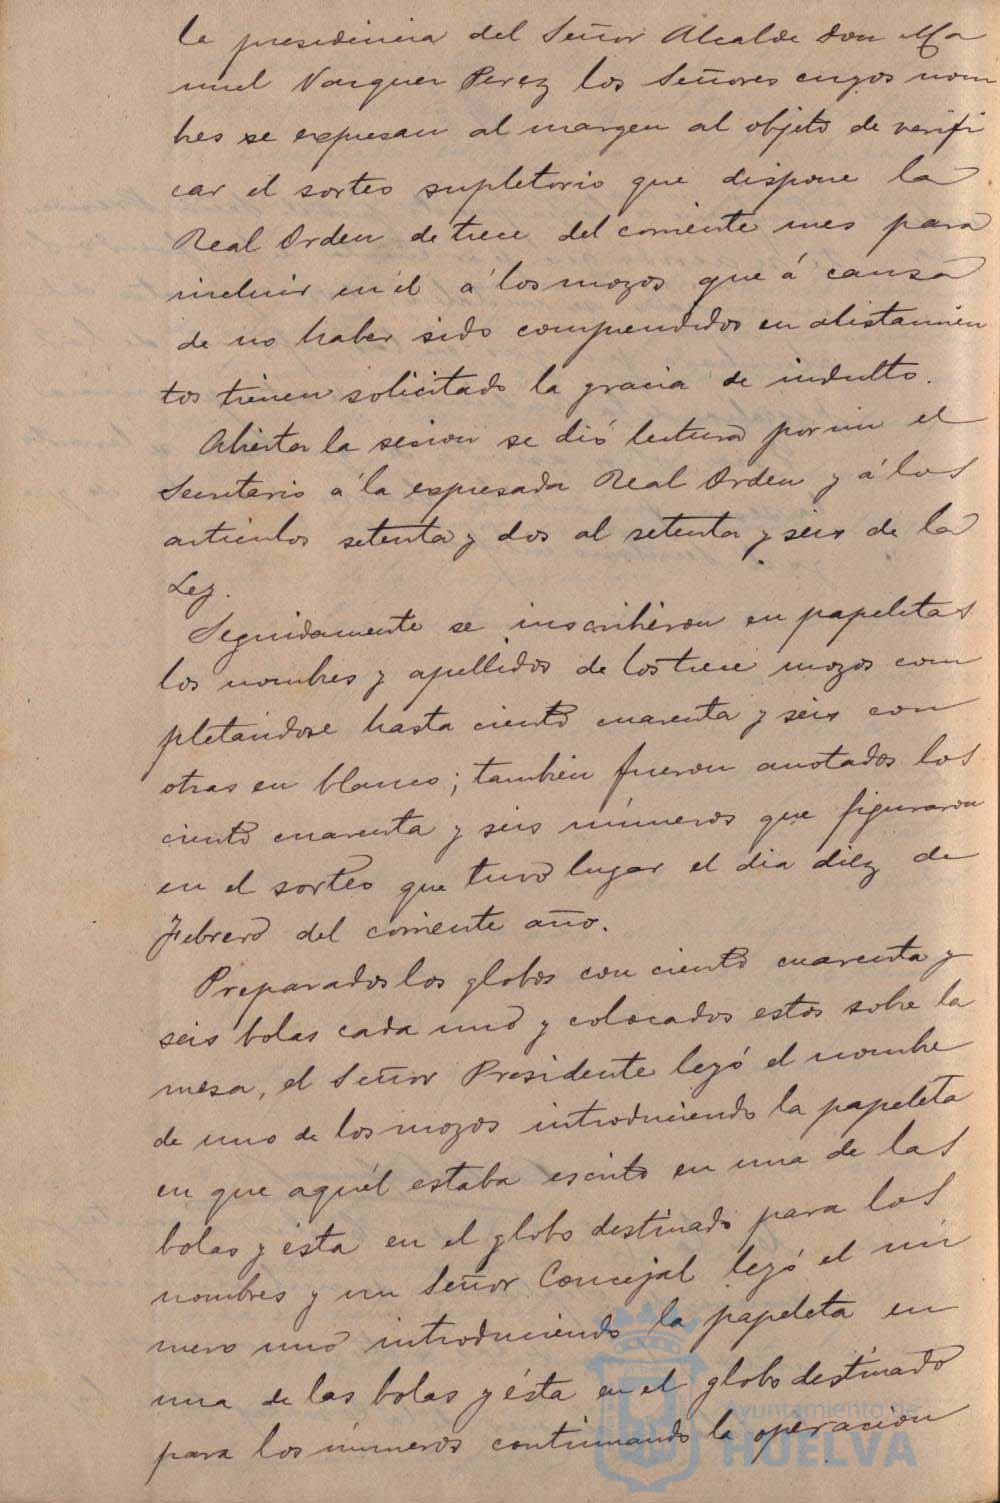 la presidencia del Señor Alcalde Don Ma
nuel Vazquez Perez los Señores cuyos nom
bres se expresan al margen al objeto de verifi
car el sorteo supletorio que dispone la
Real Orden de trece del corriente mes para
incluir en él á los mozos que á causa
de no haber sido comprendidos en alistamien
tos tienen solicitado la gracia de indulto.
Abierta la sesion se dió lectura por mi el
Secretario á la expresada Real Orden y á los
articulos setenta y dos al setenta y seis de la
Ley.
Seguidamente se inscribieron en papeletas
los nombres y apellidos de los trece mozos com
pletándose hasta ciento cuarenta y seis con
otras en blanco; tambien fueron anotados los
ciento cuarenta y seis números que figuraron
en el sorteo que tuvo lugar el dia diez de
Febrero del corriente año.
Preparados los globos con ciento cuarenta y
seis bolas cada uno y colocados estos sobre la
mesa, el Señor Presidente leyó el nombre
de uno de los mozos introduciendo la papeleta
en que aquél estaba escrito en una de las
bolas y ésta en el globo destinado para los
nombres y un Señor Concejal leyó el nú
mero uno introduciendo la papeleta en
una de las bolas y ésta en el globo destinado
para los números continuando la operacion
Ayuntamiento de
HUELVA